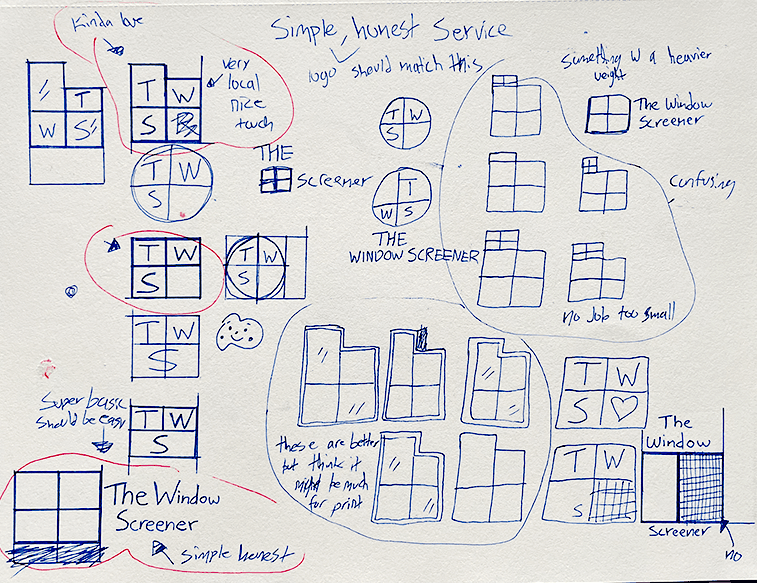 Simple, honest Service
logo should match this
Kinda love
very
local
nice
touch
T
W
S
T
W
S
T W
S
THE
Screener
T W
S
T
W S
THE
WINDOW SCREENER
Something w a heavier
weight
The Window
Screener
Confusing
no Job too small
T W
S
T W
T W
S
T W
S
Super basic
Should be easy
The Window
Screener
Simple honest
these are better
but think it
might be much
for print
T W
S
T W
S
The
Window
Screener
no